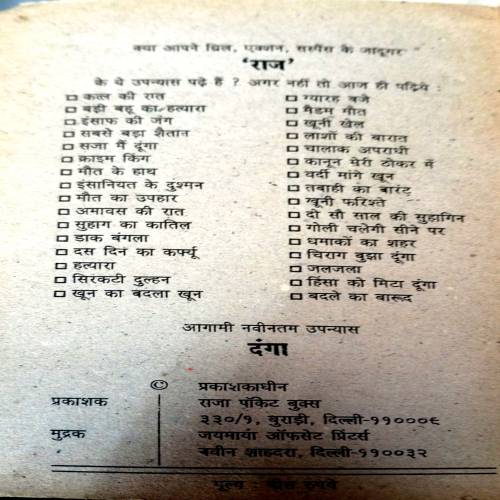 क्या आपने थ्रिल, एक्शन, सस्पैंस के जादूगर
'राज'
के ये उपन्यास पढ़े हैं ? अगर नहीं तो आज ही पढ़िये :
कत्ल की रात
बड़ी बहू का हत्यारा
इंसाफ की जंग
सबसे बड़ा शैतान
सजा मैं दूंगा
क्राइम किंग
मौत के हाथ
इंसानियत के दुश्मन
मौत का उपहार
अमावस की रात
सुहाग का कातिल
डाक बंगला
दस दिन का कर्फ्यू
हत्यारा
सिरकटी दुल्हन
खून का बदला खून
ग्यारह बजे
मैडम मौत
खूनी खेल
लाशों की बारात
चालाक अपराधी
कानून मेरी ठोकर में
वर्दी मांगे खून
तबाही का वारंट
खूनी फरिश्ते
दो सौ साल की सुहागिन
गोली चलेगी सीने पर
धमाकों का शहर
चिराग बुझा दूंगा
जलजला
हिंसा को मिटा दूंगा
बदले का बारूद
आगामी नवीनतम उपन्यास
दंगा
© प्रकाशकाधीन
प्रकाशक राजा पॉकेट बुक्स
३३०/१, बुराड़ी, दिल्ली-११०००९
मुद्रक जयमाया ऑफसेट प्रिंटर्स
नवीन शाहदरा, दिल्ली-११००३२
मूल्य : बीस रुपये